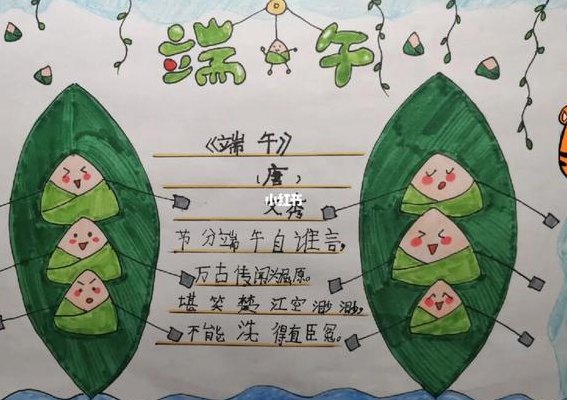 端午
《端午》
(唐)
文秀
节分端午自谁言,
万古传闻为屈原。
堪笑楚江空渺渺,
不能洗得直臣冤。
小红书